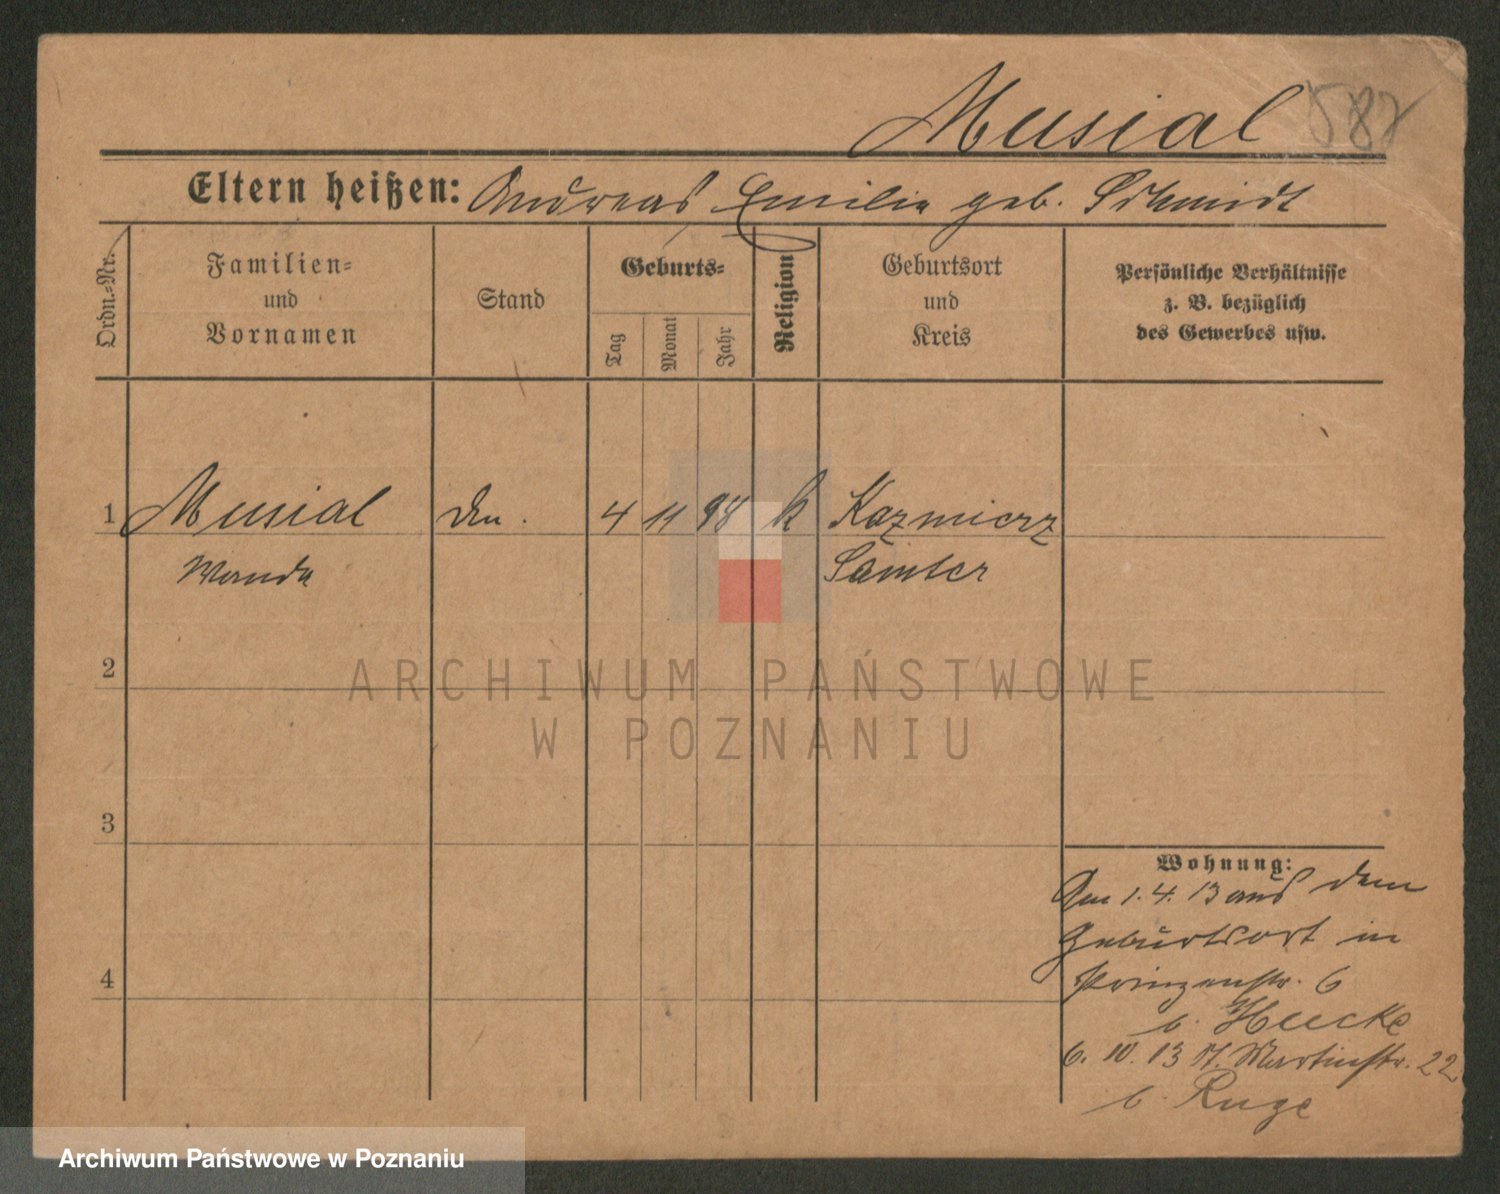 Musial 587
Eltern heißen: Andreas Emilie geb. Schmidt
Ordn.-Nr.
Familien-
und
Vornamen
Stand
Geburts-
Tag
Monat
Jahr
Religion
Geburtsort
und
Kreis
Persönliche Verhältnisse
z. B. bezüglich
des Gewerbes usw.
1 Musial 4 11 98 k Kazmierz
Wanda Samter
2
ARCHIWUM PAŃSTWOWE
W POZNANIU
3
4
Wohnung:
Am 1.4.13 aus dem
Geburtsort in
Prinzenstr. 6
b. Huecke
6. 10. 13 St. Martinstr. 22
b. Ruge
Archiwum Państwowe w Poznaniu